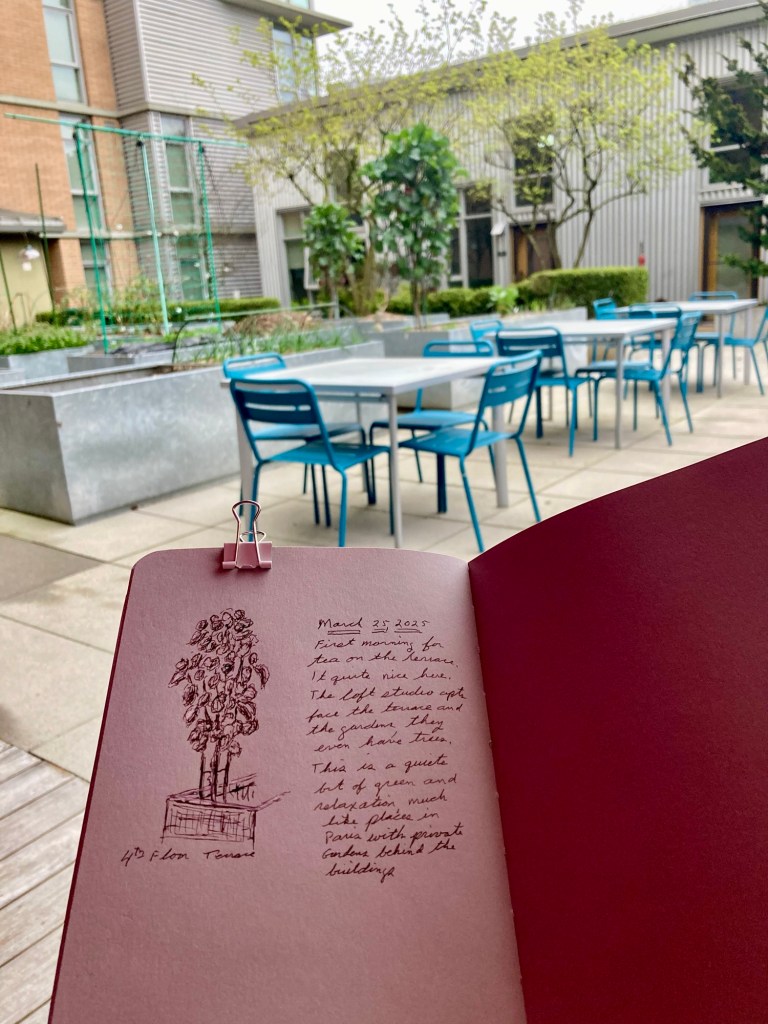 March 25, 2025
First morning for
tea on the terrace.
It quite nice here.
The loft studio apts
face the terrace and
the gardens they
even have trees.
This is a quiete
bit of green and
relaxation much
like places in
Paris with private
Gardens behind the
buildings
4th Floor Terrace